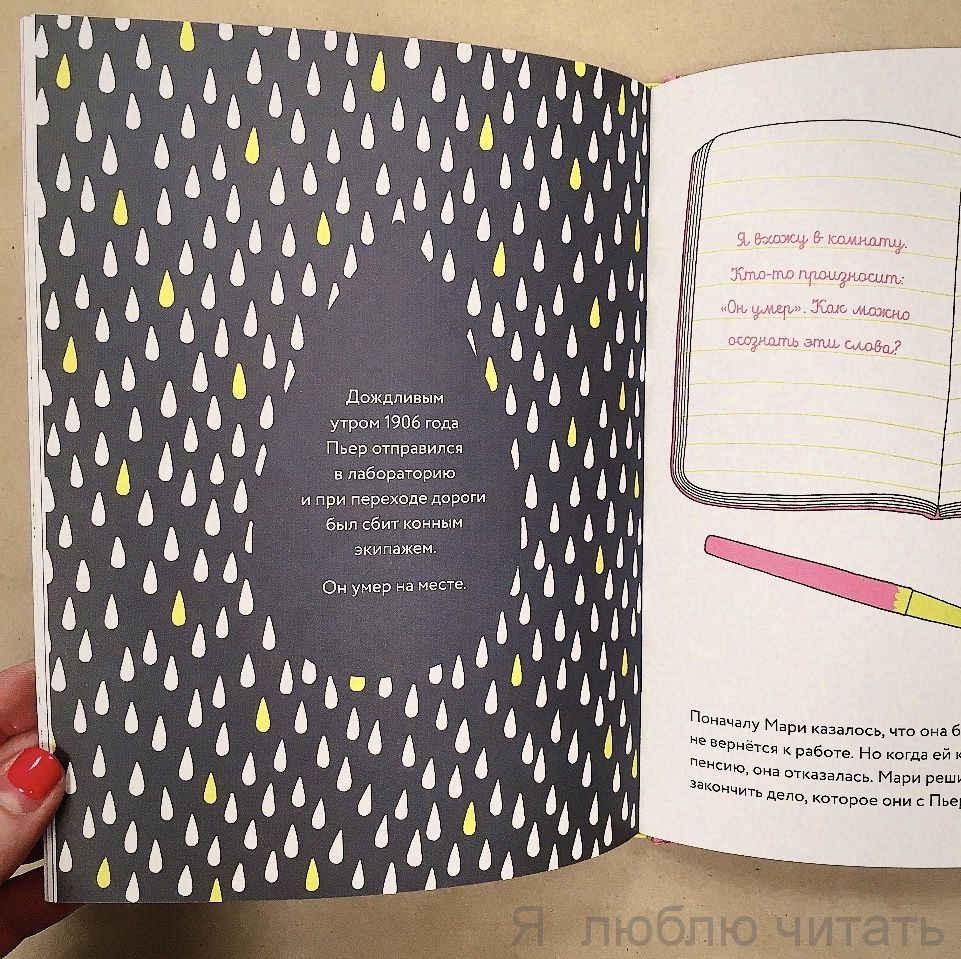 Дождливым
утром 1906 года
Пьер отправился
в лабораторию
и при переходе дороги
был сбит конным
экипажем.
Он умер на месте.
Я вхожу в комнату.
Кто-то произносит:
«Он умер». Как можно
осознать эти слова?
Поначалу Мари казалось, что она б
не вернётся к работе. Но когда ей к
пенсию, она отказалась. Мари реши
закончить дело, которое они с Пьер
Я люблю читать